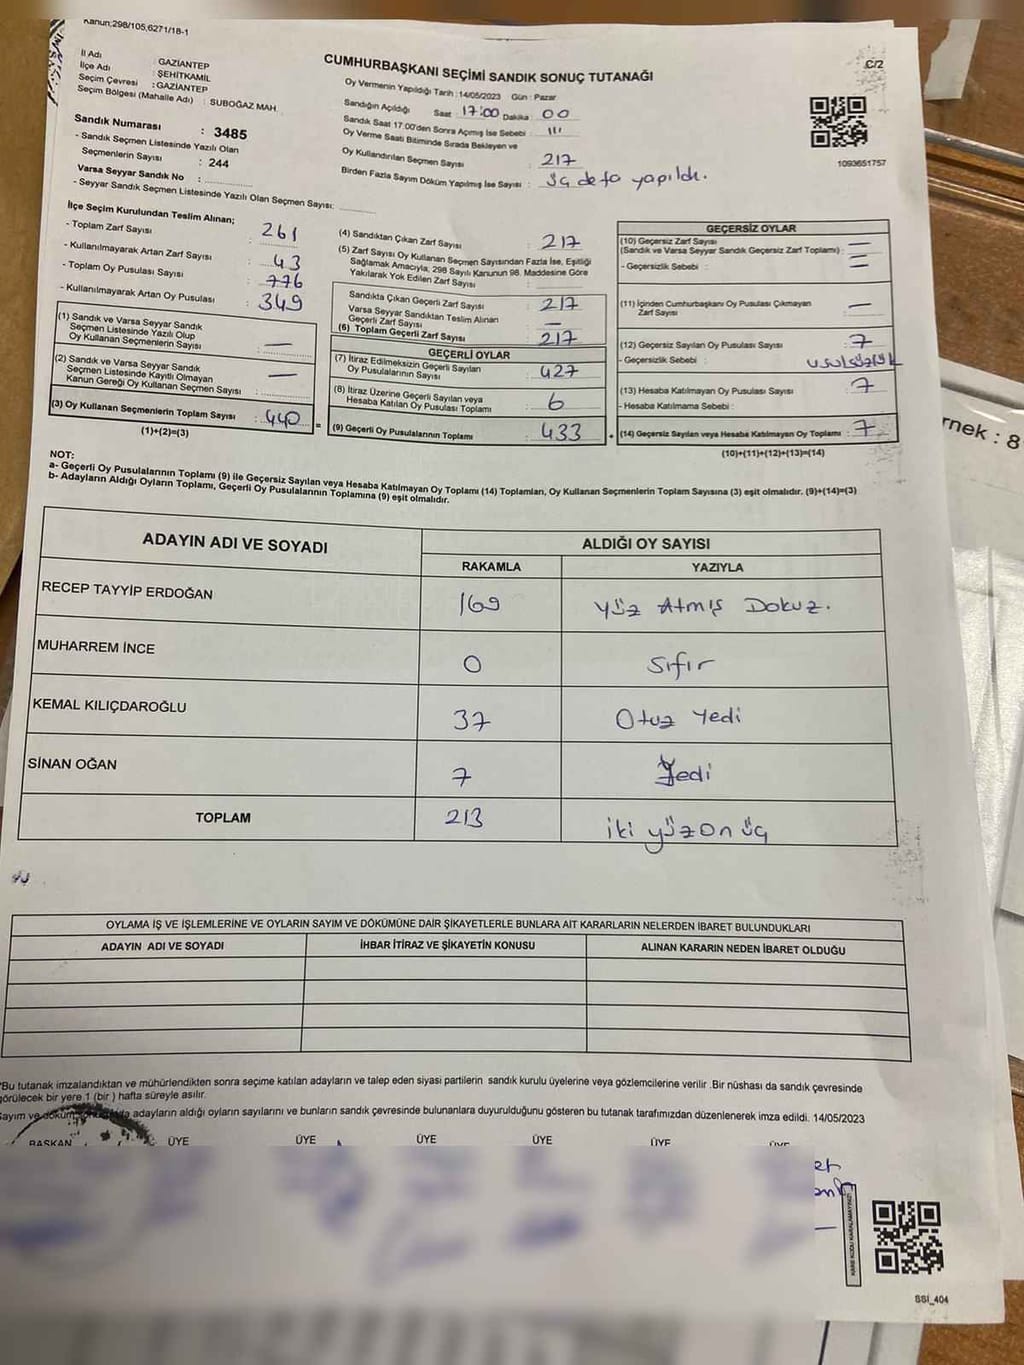 Kanun;298/105,6271/18-1
İl Adı : GAZİANTEP
İlçe Adı : ŞEHİTKAMİL
Seçim Çevresi : GAZİANTEP
Seçim Bölgesi (Mahalle Adı) : SUBOĞAZ MAH.
Sandık Numarası : 3485
- Sandık Seçmen Listesinde Yazılı Olan
Seçmenlerin Sayısı : 244
Varsa Seyyar Sandık No :
- Seyyar Sandık Seçmen Listesinde Yazılı Olan Seçmen Sayısı:
CUMHURBAŞKANI SEÇİMİ SANDIK SONUÇ TUTANAĞI
C/2
Oy Vermenin Yapıldığı Tarih : 14/05/2023 Gün : Pazar
Sandığın Açıldığı Saat 17:00 Dakika : 00
Sandık Saat 17:00'den Sonra Açımış İse Sebebi :
Oy Verme Saati Bitiminde Sırada Bekleyen ve
Oy Kullandırılan Seçmen Sayısı : 217
Birden Fazla Sayım Döküm Yapılmış İse Sayısı : üç defa yapıldı.
1093651757
İlçe Seçim Kurulundan Teslim Alınan;
- Toplam Zarf Sayısı : 261
- Kullanılmayarak Artan Zarf Sayısı : 43
- Toplam Oy Pusulası Sayısı : 776
- Kullanılmayarak Artan Oy Pusulası : 349
(1) Sandık ve Varsa Seyyar Sandık
Seçmen Listesinde Yazılı Olup
Oy Kullanan Seçmenlerin Sayısı : —
(2) Sandık ve Varsa Seyyar Sandık
Seçmen Listesinde Kayıtlı Olmayan
Kanun Gereği Oy Kullanan Seçmen Sayısı : —
(3) Oy Kullanan Seçmenlerin Toplam Sayısı : 440
(1)+(2)=(3)
(4) Sandıktan Çıkan Zarf Sayısı : 217
(5) Zarf Sayısı Oy Kullanan Seçmen Sayısından Fazla İse, Eşitliği
Sağlamak Amacıyla; 298 Sayılı Kanunun 98. Maddesine Göre
Yakılarak Yok Edilen Zarf Sayısı :
Sandıkta Çıkan Geçerli Zarf Sayısı : 217
Varsa Seyyar Sandıktan Teslim Alınan
Geçerli Zarf Sayısı : —
(6) Toplam Geçerli Zarf Sayısı : 217
GEÇERLİ OYLAR
(7) İtiraz Edilmeksizin Geçerli Sayılan
Oy Pusulalarının Sayısı : 427
(8) İtiraz Üzerine Geçerli Sayılan veya
Hesaba Katılan Oy Pusulası Toplamı : 6
= (9) Geçerli Oy Pusulalarının Toplamı : 433
GEÇERSİZ OYLAR
(10) Geçersiz Zarf Sayısı
(Sandık ve Varsa Seyyar Sandık Geçersiz Zarf Toplamı) : —
- Geçersizlik Sebebi :
(11) İçinden Cumhurbaşkanı Oy Pusulası Çıkmayan
Zarf Sayısı : —
(12) Geçersiz Sayılan Oy Pusulası Sayısı : 7
- Geçersizlik Sebebi : usulsüzlük
(13) Hesaba Katılmayan Oy Pusulası Sayısı : 7
- Hesaba Katılmama Sebebi :
(14) Geçersiz Sayılan veya Hesaba Katılmayan Oy Toplamı : 7
(10)+(11)+(12)+(13)=(14)
NOT:
a- Geçerli Oy Pusulalarının Toplamı (9) ile Geçersiz Sayılan veya Hesaba Katılmayan Oy Toplamı (14) Toplamları, Oy Kullanan Seçmenlerin Toplam Sayısına (3) eşit olmalıdır. (9)+(14)=(3)
b- Adayların Aldığı Oyların Toplamı, Geçerli Oy Pusulalarının Toplamına (9) eşit olmalıdır.
ADAYIN ADI VE SOYADI
ALDIĞI OY SAYISI
RAKAMLA YAZIYLA
RECEP TAYYİP ERDOĞAN 169 Yüz Atmış Dokuz.
MUHARREM İNCE 0 Sıfır
KEMAL KILIÇDAROĞLU 37 Otuz Yedi
SİNAN OĞAN 7 Yedi
TOPLAM 213 iki yüz on üç
OYLAMA İŞ VE İŞLEMLERİNE VE OYLARIN SAYIM VE DÖKÜMÜNE DAİR ŞİKAYETLERLE BUNLARA AİT KARARLARIN NELERDEN İBARET BULUNDUKLARI
ADAYIN ADI VE SOYADI İHBAR İTİRAZ VE ŞİKAYETİN KONUSU ALINAN KARARIN NEDEN İBARET OLDUĞU
"Bu tutanak imzalandıktan ve mühürlendikten sonra seçime katılan adayların ve talep eden siyasi partilerin sandık kurulu üyelerine veya gözlemcilerine verilir .Bir nüshası da sandık çevresinde
görülecek bir yere 1 (bir ) hafta süreyle asılır.
Sayım ve adayların aldığı oyların sayılarını ve bunların sandık çevresinde bulunanlara duyurulduğunu gösteren bu tutanak tarafımızdan düzenlenerek imza edildi. 14/05/2023
BAŞKAN ÜYE ÜYE ÜYE ÜYE ÜYE ÜYE
KARE KODU KARALAMAYINIZ
SSİ_404
rnek : 8